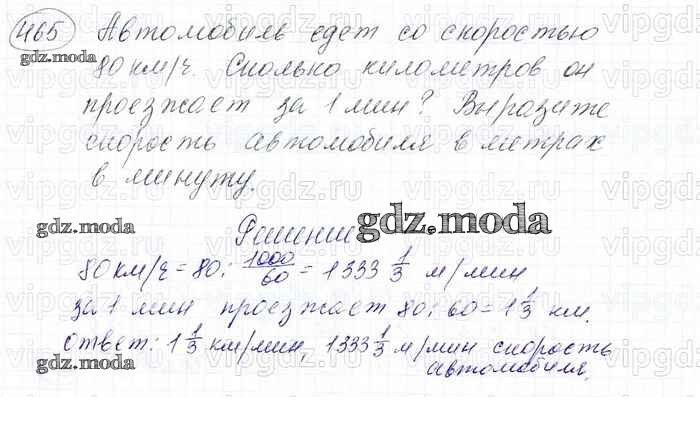 465 Автомобиль едет со скоростью
gdz.moda
80 км/ч. Сколько километров он
проезжает за 1 мин? Выразите
скорость автомобиля в метрах
в минуту.
gdz.moda
Решение
gdz.moda
80 км/ч = 80 : 1000/60 = 1333 1/3 м/мин
за 1 мин проезжает 80 : 60 = 1 1/3 км.
ответ: 1 1/3 км/мин, 1333 1/3 м/мин скорость
gdz.moda
автомобиля.